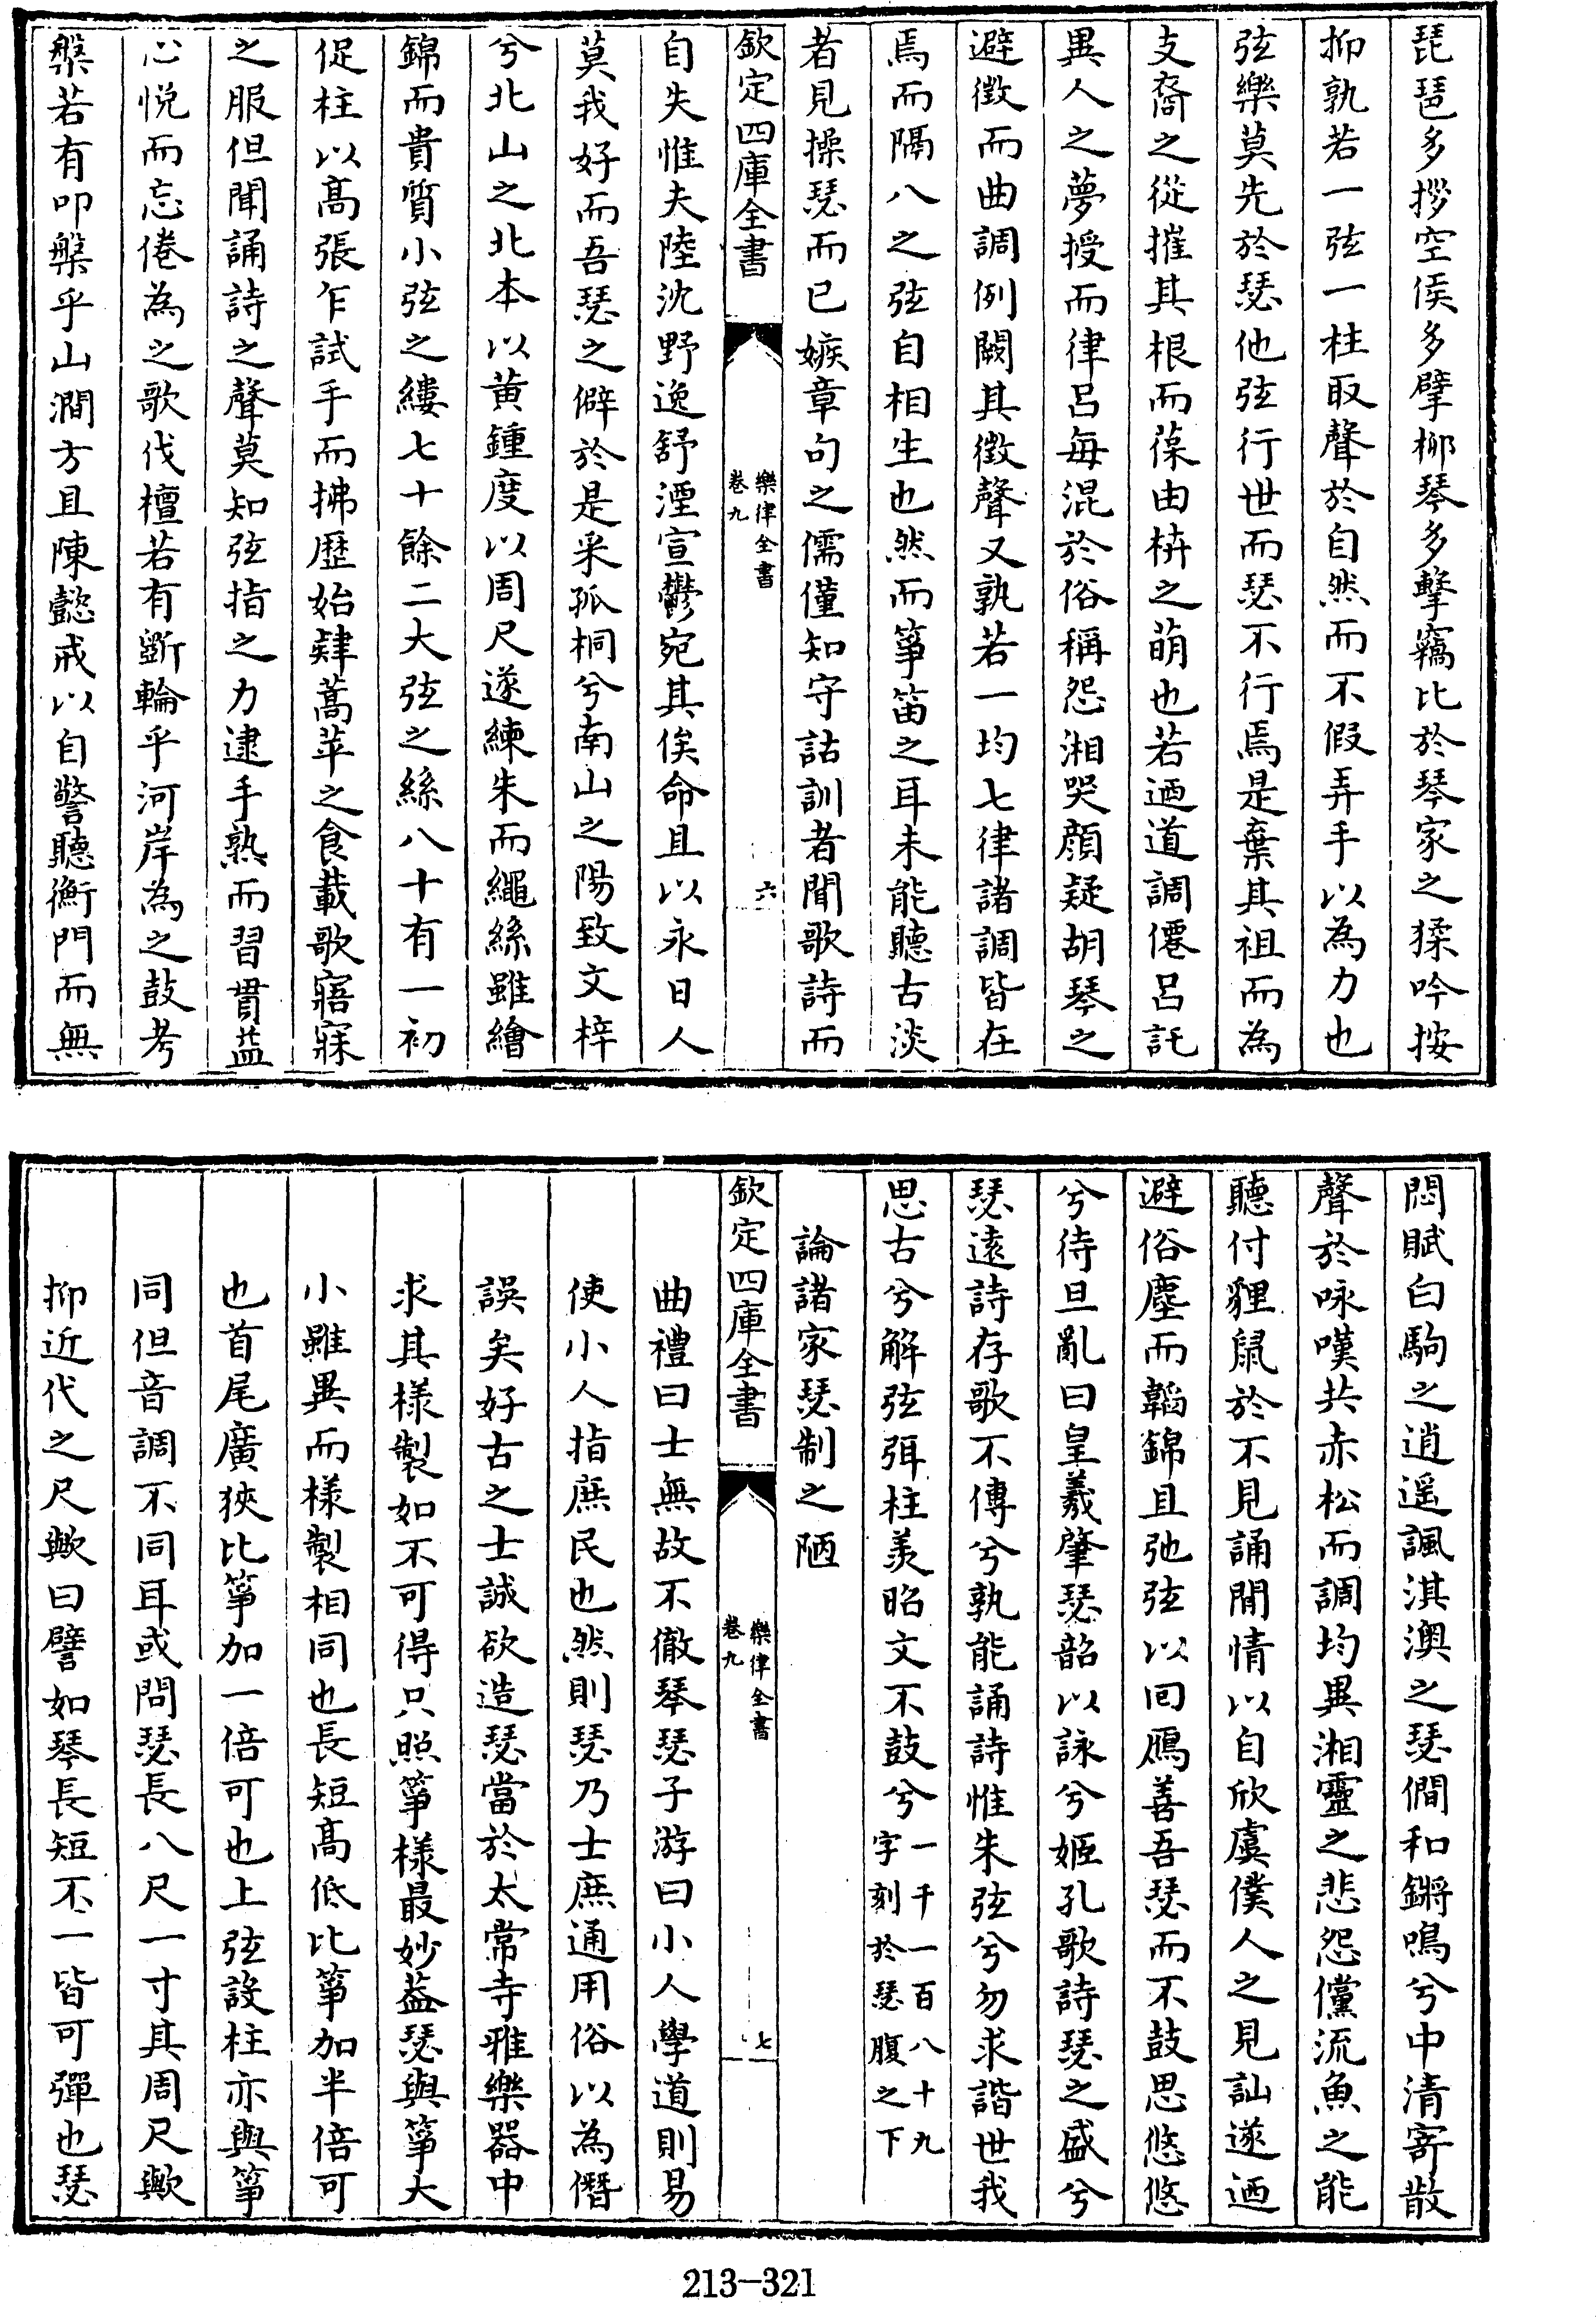 琵琶多拶空侯多擘栁琴多擊竊比於琴家之猱吟按
抑孰若一弦一柱取聲於自然而不假弄手以為力也
弦樂莫先於瑟他弦行世而瑟不行焉是棄其祖而為
支裔之從摧其根而葆由枿之萌也若迺道調僊呂託
異人之夢授而律呂每混於俗稱怨湘哭顔疑胡琴之
避徴而曲調例闕其徴聲又孰若一均七律諸調皆在
焉而隔八之弦自相生也然而箏笛之耳未能聽古淡
者見操瑟而已嫉章句之儒僅知守詁訓者聞歌詩而
欽定四庫全書
樂律全書
卷九
六
自失惟夫陸沈野逸舒湮宣鬱宛其俟命且以永日人
莫我好而吾瑟之僻於是采孤桐兮南山之陽致文梓
兮北山之北本以黄鍾度以周尺遂練朱而繩絲雖繪
錦而貴質小弦之縷七十餘二大弦之絲八十有一初
促柱以髙張乍試手而拂歴始肄蒿苹之食載歌寤寐
之服但聞誦詩之聲莫知弦指之力逮手熟而習貫益
心悦而忘倦為之歌伐檀若有斵輪乎河岸為之鼓考
槃若有叩槃乎山澗方且陳懿戒以自警聽衡門而無
悶賦白駒之逍遥諷淇澳之瑟僩和鏘鳴兮中清寄散
聲於咏嘆共赤松而調均異湘靈之悲怨儻流魚之能
聽付貍鼠於不見誦閒情以自欣虞僕人之見訕遂迺
避俗塵而韜錦且弛弦以囘鴈善吾瑟而不鼓思悠悠
兮待旦亂曰皇羲肇瑟韶以詠兮姬孔歌詩瑟之盛兮
瑟逺詩存歌不傳兮孰能誦詩惟朱弦兮勿求諧世我
思古兮解弦弭柱羙昭文不鼓兮一千一百八十九
字刻於瑟腹之下
論諸家瑟制之陋
欽定四庫全書
樂律全書
卷九
七
曲禮曰士無故不徹琴瑟子游曰小人學道則易
使小人指庶民也然則瑟乃士庶通用俗以為僭
誤矣好古之士誠欲造瑟當於太常寺雅樂器中
求其樣製如不可得只照箏様最妙葢瑟與箏大
小雖異而樣製相同也長短髙低比箏加半倍可
也首尾廣狹比箏加一倍可也上弦設柱亦與箏
同但音調不同耳或問瑟長八尺一寸其周尺歟
抑近代之尺歟曰譬如琴長短不一皆可彈也瑟
213-321